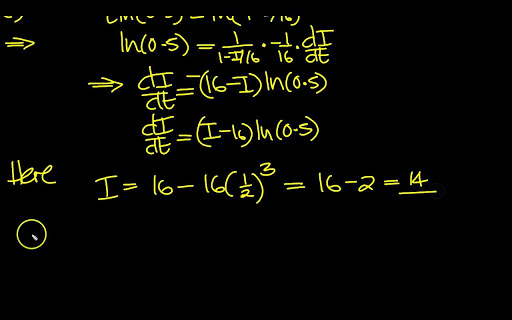 ⇒ ln(0.5) = 1/(1-I/16) · -1/16 · dI/dt
⇒ dI/dt = -(16-I)ln(0.5)
dI/dt = (I-16)ln(0.5)
Here I = 16 - 16(1/2)^3 = 16-2 = 14